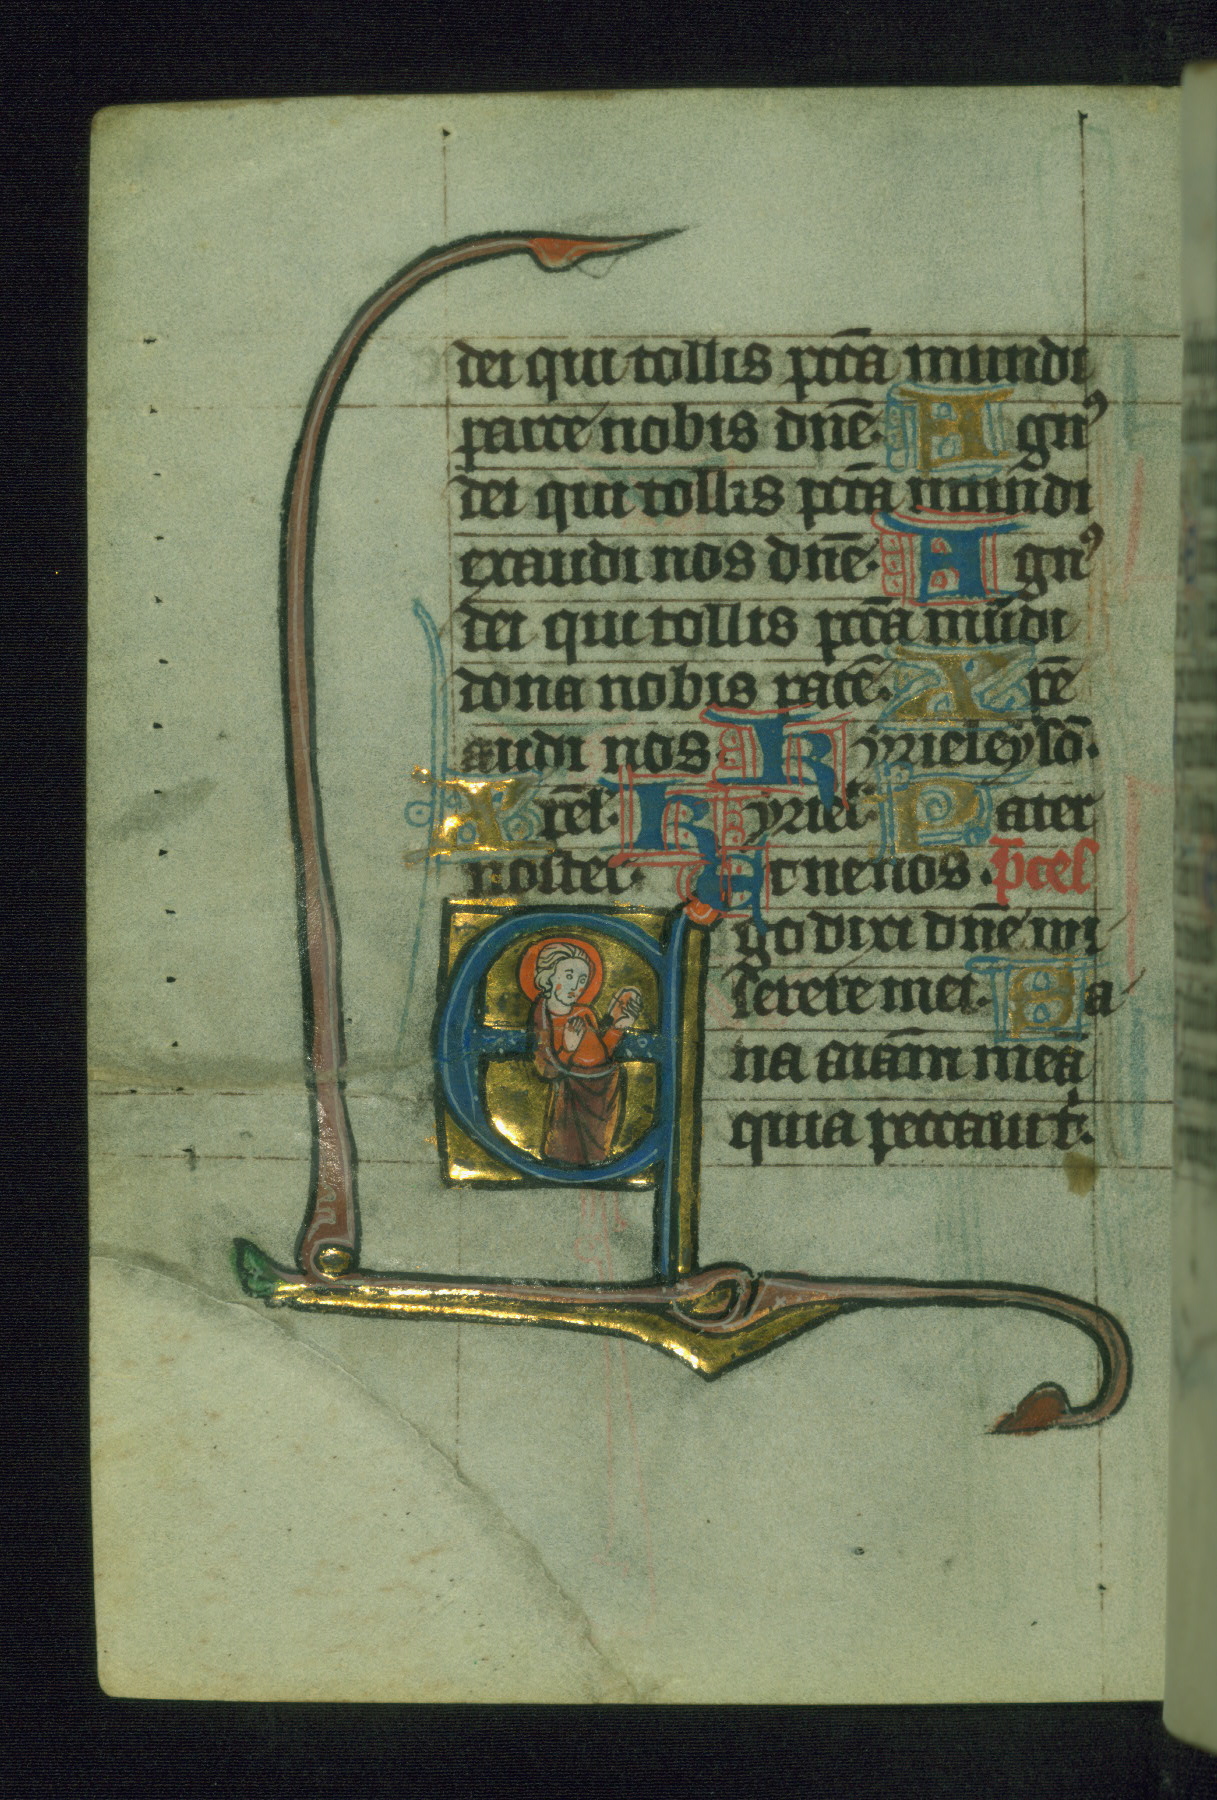 dei qui tollis pctā mundi
parce nobis dn̄e. Agnꝰ
dei qui tollis pctā mundi
exaudi nos dn̄e. Agnꝰ
dei qui tollis pctā mūdi
dona nobis pacē. Xp̄e
audi nos. Kyrieleysō.
Xp̄el. Kyriel. Pater
noster. Et ne nos. P̄ces
Ego dixi dn̄e mi
serere mei. Sa
na aīam meā
quia peccaui t̄.